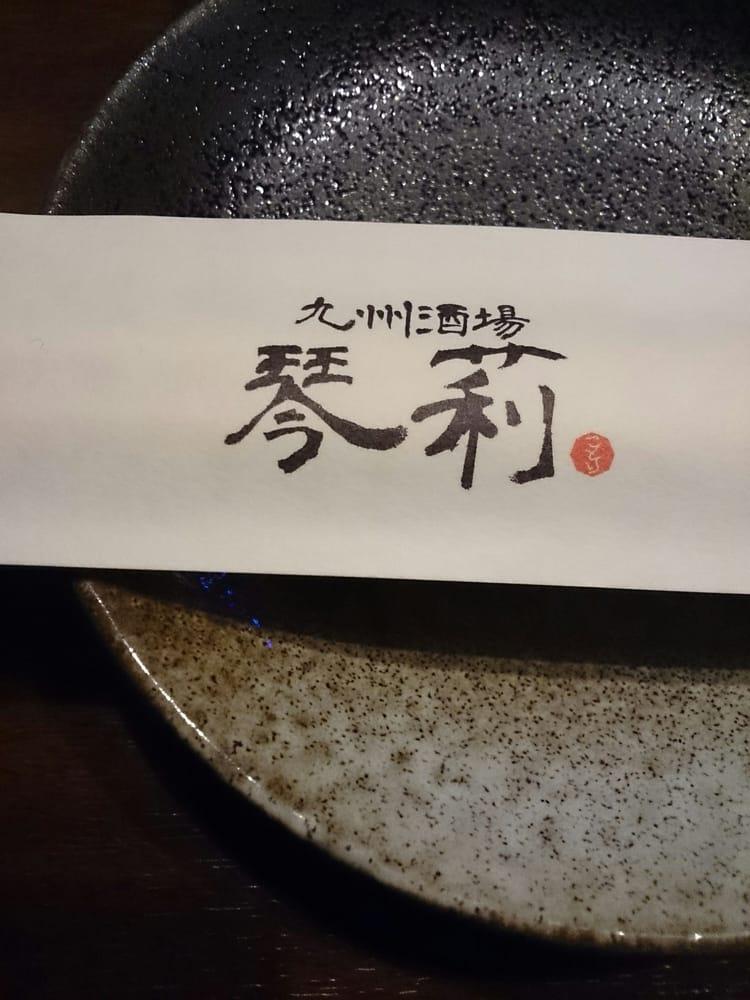 九州酒場
琴莉
ことり